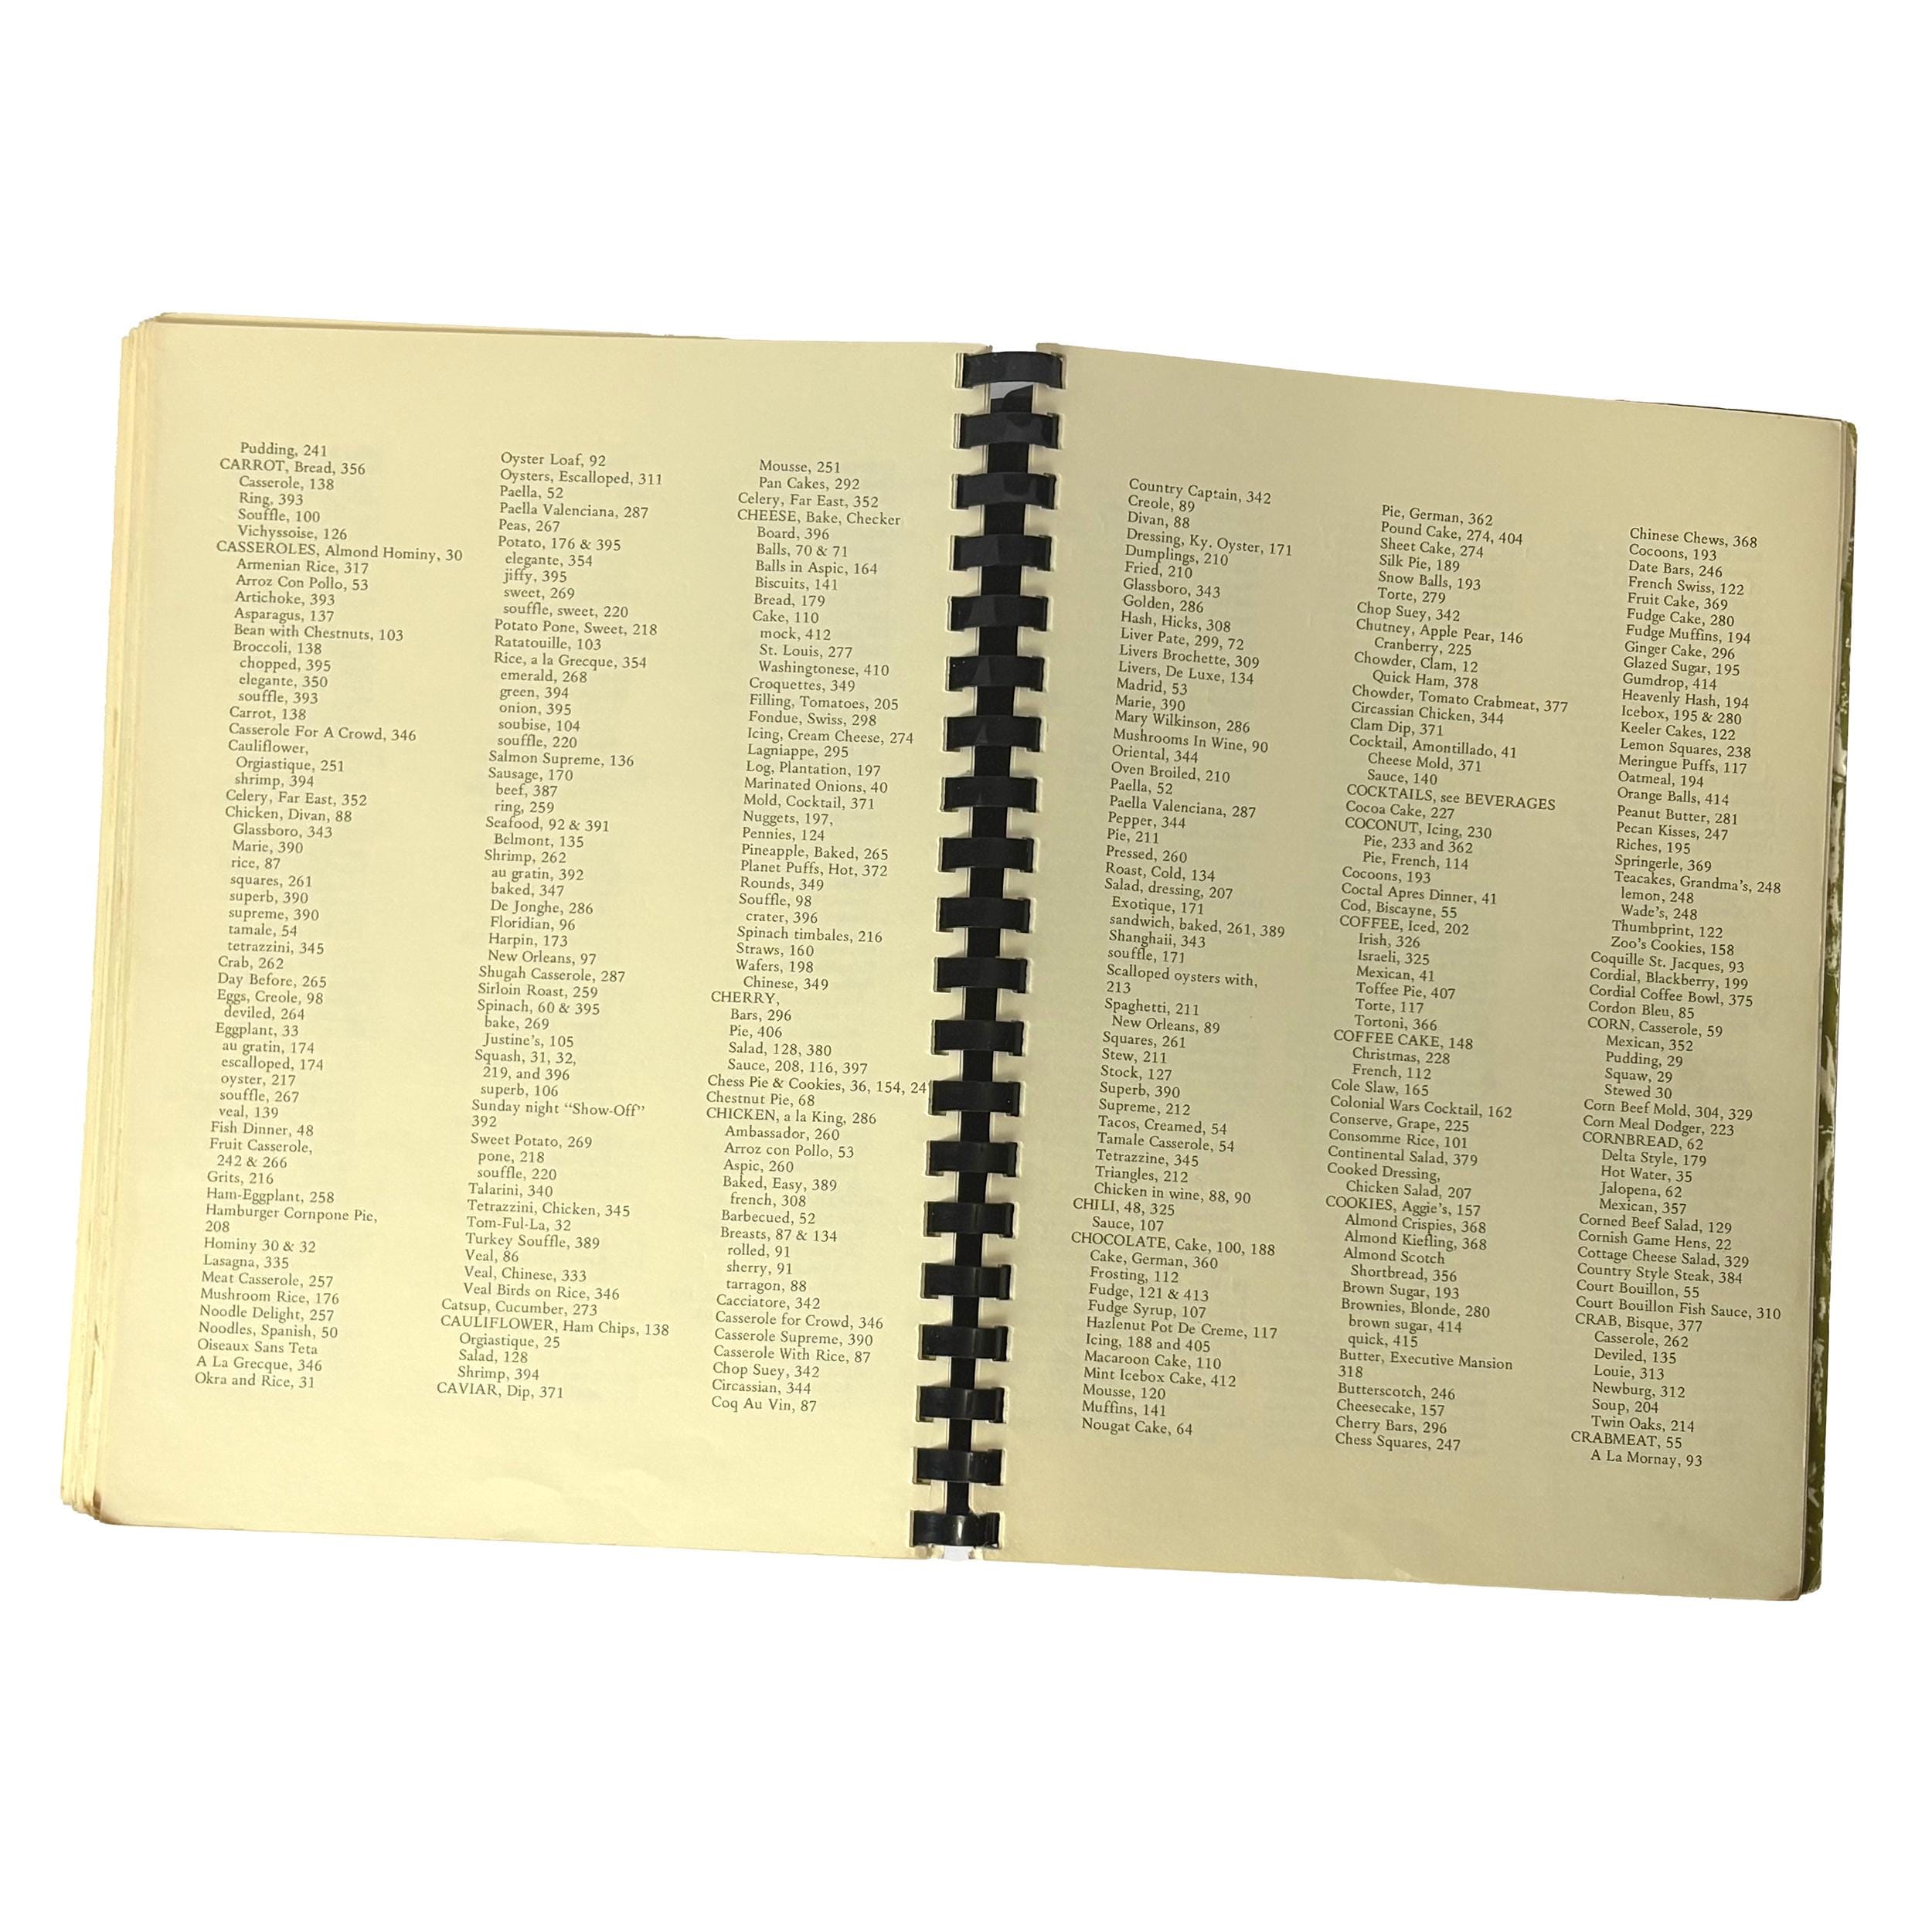 Pudding, 241
CARROT, Bread, 356
Casserole, 138
Ring, 393
Souffle, 100
Vichyssoise, 126
CASSEROLES, Almond Hominy, 30
Armenian Rice, 317
Arroz Con Pollo, 53
Artichoke, 393
Asparagus, 137
Bean with Chestnuts, 103
Broccoli, 138
chopped, 395
elegante, 350
souffle, 393
Carrot, 138
Casserole For A Crowd, 346
Cauliflower,
Orgiastique, 251
shrimp, 394
Celery, Far East, 352
Chicken, Divan, 88
Glassboro, 343
Marie, 390
rice, 87
squares, 261
superb, 390
supreme, 390
tamale, 54
tetrazzini, 345
Crab, 262
Day Before, 265
Eggs, Creole, 98
deviled, 264
Eggplant, 33
au gratin, 174
escalloped, 174
oyster, 217
souffle, 267
veal, 139
Fish Dinner, 48
Fruit Casserole,
242 & 266
Grits, 216
Ham-Eggplant, 258
Hamburger Cornpone Pie,
208
Hominy 30 & 32
Lasagna, 335
Meat Casserole, 257
Mushroom Rice, 176
Noodle Delight, 257
Noodles, Spanish, 50
Oiseaux Sans Teta
A La Grecque, 346
Okra and Rice, 31
Oyster Loaf, 92
Oysters, Escalloped, 311
Paella, 52
Paella Valenciana, 287
Peas, 267
Potato, 176 & 395
elegante, 354
jiffy, 395
sweet, 269
souffle, sweet, 220
Potato Pone, Sweet, 218
Ratatouille, 103
Rice, a la Grecque, 354
emerald, 268
green, 394
onion, 395
soubise, 104
souffle, 220
Salmon Supreme, 136
Sausage, 170
beef, 387
ring, 259
Seafood, 92 & 391
Belmont, 135
Shrimp, 262
au gratin, 392
baked, 347
De Jonghe, 286
Floridian, 96
Harpin, 173
New Orleans, 97
Shugah Casserole, 287
Sirloin Roast, 259
Spinach, 60 & 395
bake, 269
Justine's, 105
Squash, 31, 32,
219, and 396
superb, 106
Sunday night “Show-Off”
392
Sweet Potato, 269
pone, 218
souffle, 220
Talarini, 340
Tetrazzini, Chicken, 345
Tom-Ful-La, 32
Turkey Souffle, 389
Veal, 86
Veal, Chinese, 333
Veal Birds on Rice, 346
Catsup, Cucumber, 273
CAULIFLOWER, Ham Chips, 138
Orgiastique, 25
Salad, 128
Shrimp, 394
CAVIAR, Dip, 371
Mousse, 251
Pan Cakes, 292
Celery, Far East, 352
CHEESE, Bake, Checker
Board, 396
Balls, 70 & 71
Balls in Aspic, 164
Biscuits, 141
Bread, 179
Cake, 110
mock, 412
St. Louis, 277
Washingtonese, 410
Croquettes, 349
Filling, Tomatoes, 205
Fondue, Swiss, 298
Icing, Cream Cheese, 274
Lagniappe, 295
Log, Plantation, 197
Marinated Onions, 40
Mold, Cocktail, 371
Nuggets, 197,
Pennies, 124
Pineapple, Baked, 265
Planet Puffs, Hot, 372
Rounds, 349
Souffle, 98
crater, 396
Spinach timbales, 216
Straws, 160
Wafers, 198
Chinese, 349
CHERRY,
Bars, 296
Pie, 406
Salad, 128, 380
Sauce, 208, 116, 397
Chess Pie & Cookies, 36, 154, 24
Chestnut Pie, 68
CHICKEN, a la King, 286
Ambassador, 260
Arroz con Pollo, 53
Aspic, 260
Baked, Easy, 389
french, 308
Barbecued, 52
Breasts, 87 & 134
rolled, 91
sherry, 91
tarragon, 88
Cacciatore, 342
Casserole for Crowd, 346
Casserole Supreme, 390
Casserole With Rice, 87
Chop Suey, 342
Circassian, 344
Coq Au Vin, 87
Country Captain, 342
Creole, 89
Divan, 88
Dressing, Ky. Oyster, 171
Dumplings, 210
Fried, 210
Glassboro, 343
Golden, 286
Hash, Hicks, 308
Liver Pate, 299, 72
Livers Brochette, 309
Livers, De Luxe, 134
Madrid, 53
Marie, 390
Mary Wilkinson, 286
Mushrooms In Wine, 90
Oriental, 344
Oven Broiled, 210
Paella, 52
Paella Valenciana, 287
Pepper, 344
Pie, 211
Pressed, 260
Roast, Cold, 134
Salad, dressing, 207
Exotique, 171
sandwich, baked, 261, 389
Shanghaii, 343
souffle, 171
Scalloped oysters with,
213
Spaghetti, 211
New Orleans, 89
Squares, 261
Stew, 211
Stock, 127
Superb, 390
Supreme, 212
Tacos, Creamed, 54
Tamale Casserole, 54
Tetrazzine, 345
Triangles, 212
Chicken in wine, 88, 90
CHILI, 48, 325
Sauce, 107
CHOCOLATE, Cake, 100, 188
Cake, German, 360
Frosting, 112
Fudge, 121 & 413
Fudge Syrup, 107
Hazlenut Pot De Creme, 117
Icing, 188 and 405
Macaroon Cake, 110
Mint Icebox Cake, 412
Mousse, 120
Muffins, 141
Nougat Cake, 64
Pie, German, 362
Pound Cake, 274, 404
Sheet Cake, 274
Silk Pie, 189
Snow Balls, 193
Torte, 279
Chop Suey, 342
Chutney, Apple Pear, 146
Cranberry, 225
Chowder, Clam, 12
Quick Ham, 378
Chowder, Tomato Crabmeat, 377
Circassian Chicken, 344
Clam Dip, 371
Cocktail, Amontillado, 41
Cheese Mold, 371
Sauce, 140
COCKTAILS, see BEVERAGES
Cocoa Cake, 227
COCONUT, Icing, 230
Pie, 233 and 362
Pie, French, 114
Cocoons, 193
Coctal Apres Dinner, 41
Cod, Biscayne, 55
COFFEE, Iced, 202
Irish, 326
Israeli, 325
Mexican, 41
Toffee Pie, 407
Torte, 117
Tortoni, 366
COFFEE CAKE, 148
Christmas, 228
French, 112
Cole Slaw, 165
Colonial Wars Cocktail, 162
Conserve, Grape, 225
Consomme Rice, 101
Continental Salad, 379
Cooked Dressing,
Chicken Salad, 207
COOKIES, Aggie's, 157
Almond Crispies, 368
Almond Kiefling, 368
Almond Scotch
Shortbread, 356
Brown Sugar, 193
Brownies, Blonde, 280
brown sugar, 414
quick, 415
Butter, Executive Mansion
318
Butterscotch, 246
Cheesecake, 157
Cherry Bars, 296
Chess Squares, 247
Chinese Chews, 368
Cocoons, 193
Date Bars, 246
French Swiss, 122
Fruit Cake, 369
Fudge Cake, 280
Fudge Muffins, 194
Ginger Cake, 296
Glazed Sugar, 195
Gumdrop, 414
Heavenly Hash, 194
Icebox, 195 & 280
Keeler Cakes, 122
Lemon Squares, 238
Meringue Puffs, 117
Oatmeal, 194
Orange Balls, 414
Peanut Butter, 281
Pecan Kisses, 247
Riches, 195
Springerle, 369
Teacakes, Grandma's, 248
lemon, 248
Wade's, 248
Thumbprint, 122
Zoo's Cookies, 158
Coquille St. Jacques, 93
Cordial, Blackberry, 199
Cordial Coffee Bowl, 375
Cordon Bleu, 85
CORN, Casserole, 59
Mexican, 352
Pudding, 29
Squaw, 29
Stewed 30
Corn Beef Mold, 304, 329
Corn Meal Dodger, 223
CORNBREAD, 62
Delta Style, 179
Hot Water, 35
Jalopena, 62
Mexican, 357
Corned Beef Salad, 129
Cornish Game Hens, 22
Cottage Cheese Salad, 329
Country Style Steak, 384
Court Bouillon, 55
Court Bouillon Fish Sauce, 310
CRAB, Bisque, 377
Casserole, 262
Deviled, 135
Louie, 313
Newburg, 312
Soup, 204
Twin Oaks, 214
CRABMEAT, 55
A La Mornay, 93